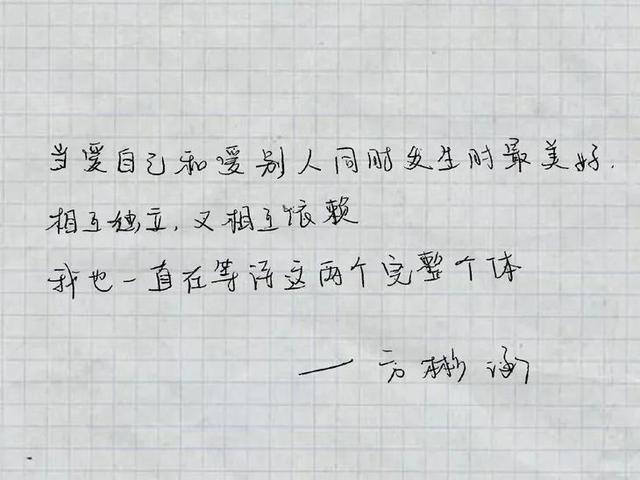 当爱自己和爱别人同时发生时最美好.
相互独立,又相互依赖
我也一直在等待这两个完整个体
—方彬涵